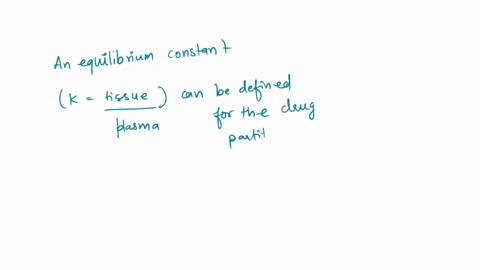 An equilibrium constant
(K = tissue / plasma) can be defined
for the drug
partit